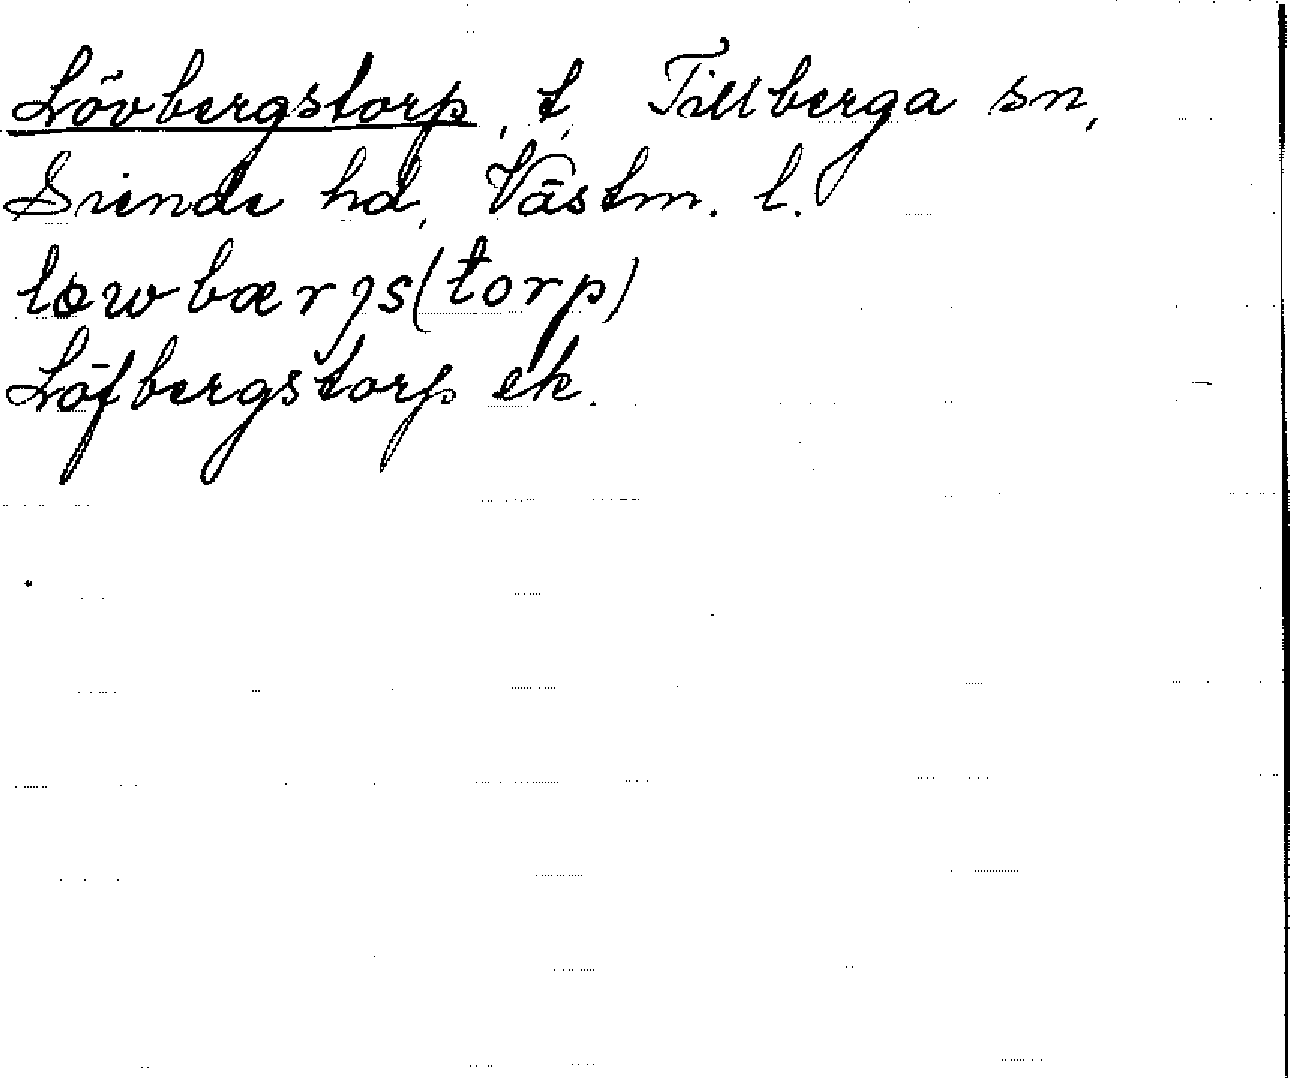 Lövbergstorp, t, Tillberga sn,
Siende hd, Västm. l.
löwbærjs(torp)
Löfbergstorp ek.